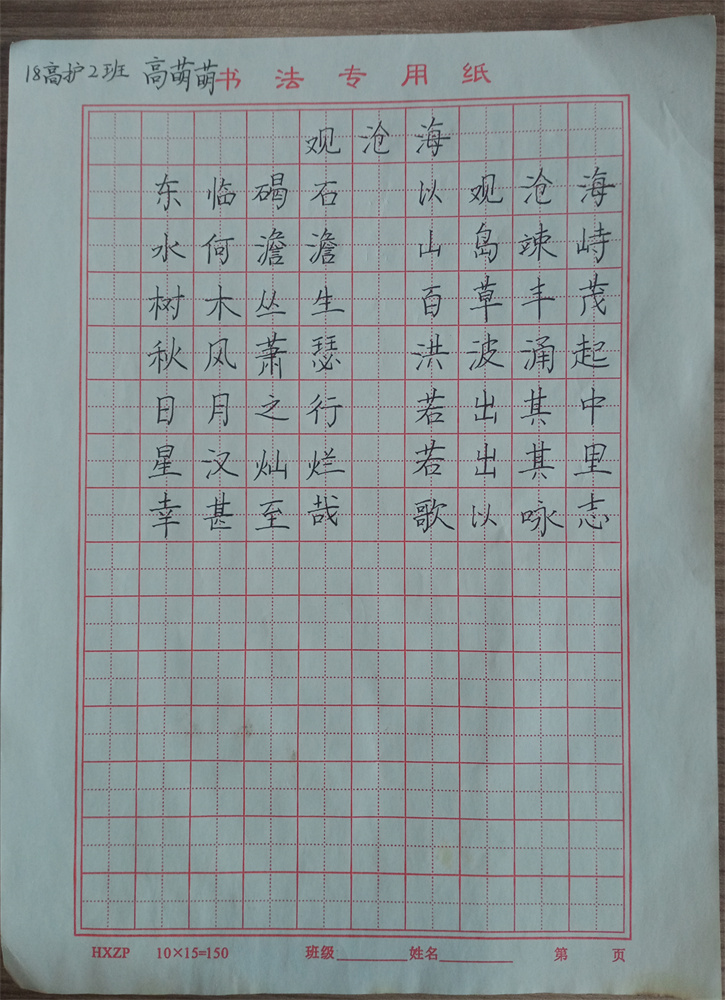 18高护2班 高萌萌
书法专用纸
观沧海
东临碣石 以观沧海
水何澹澹 山岛竦峙
树木丛生 百草丰茂
秋风萧瑟 洪波涌起
日月之行 若出其中
星汉灿烂 若出其里
幸甚至哉 歌以咏志
HXZP 10×15=150 班级 姓名 第 页